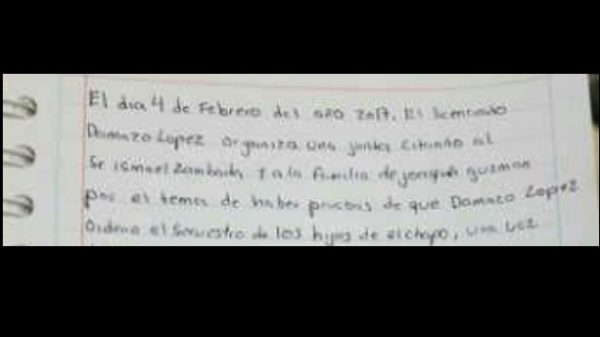 El dia 4 de Febrero del año 2017. El licenciado
Damazo Lopez organiza una junta citando al
Sr ismael Zambada. Y a la familia de joaquin guzman
por el tema de haber pruebas de que Damazo Lopez
Ordeno el Secuestro de los hijos de el chapo, una vez